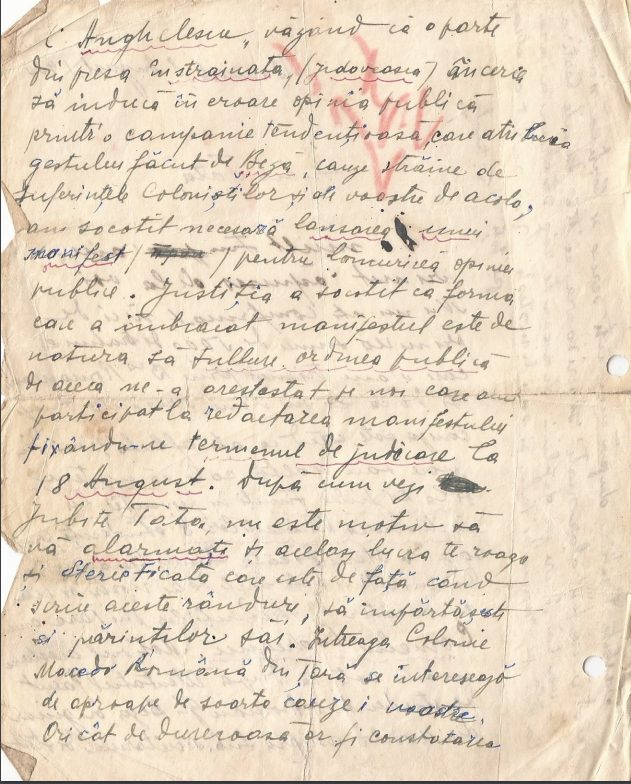 C. Anghelescu, văzând că o parte
din presa înstrăinată, (jidovească) încerca
să inducă în eroare opinia publică
printr'o campanie tendențioasă, care atribuia
gestului făcut de Beza, cauze străine de
suferințele Coloniștilor și ale voastre de acolo,
am socotit necesară lansarea unui
manifest / / pentru lămurirea opiniei
publice. Justiția a socotit ca forma
care a îmbrăcat manifestul este de
natura să tulbure ordinea publică
de aceea ne-a arestat pe noi care am
participat la redactarea manifestului
fixându-ne termenul de judecare la
18 August. După cum vezi
Iubite Tata, nu este motiv să
vă alarmați și același lucru te roagă
și Sterie Ficata care este de față când
scriu aceste rânduri, să împărtășești
și părinților săi. Intreaga Colonie
Macedo Română din Țară se interesează
de aproape de soarta cauzei voastre.
Oricât de dureroasă ar fi constatarea